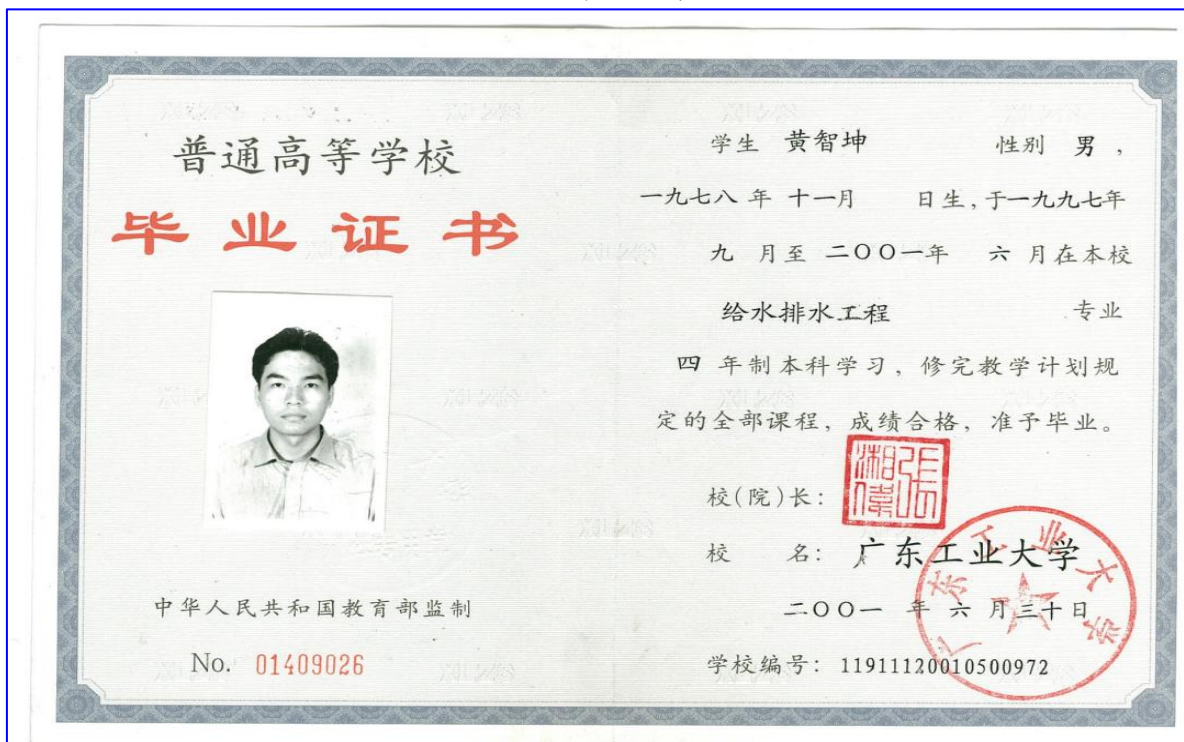 普通高等学校
毕业证书
中华人民共和国教育部监制
No. 01409026
学生 黄智坤 性别 男，
一九七八年 十一月 日生，于一九九七年
九 月至 二〇〇一年 六 月在本校
给水排水工程 专业
四 年制本科学习，修完教学计划规
定的全部课程，成绩合格，准予毕业。
校(院)长：
張湘偉
校 名：广东工业大学
二〇〇一 年 六 月三十日
学校编号：119111200105000972
广东工业大学